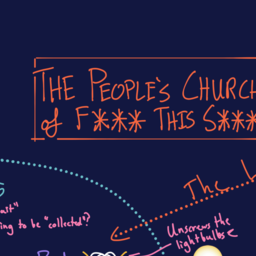 THE PEOPLE'S CHURCH
of F*** THIS S***
The
ast"
ing to be "collected"?
Unscrews the
lightbulbs